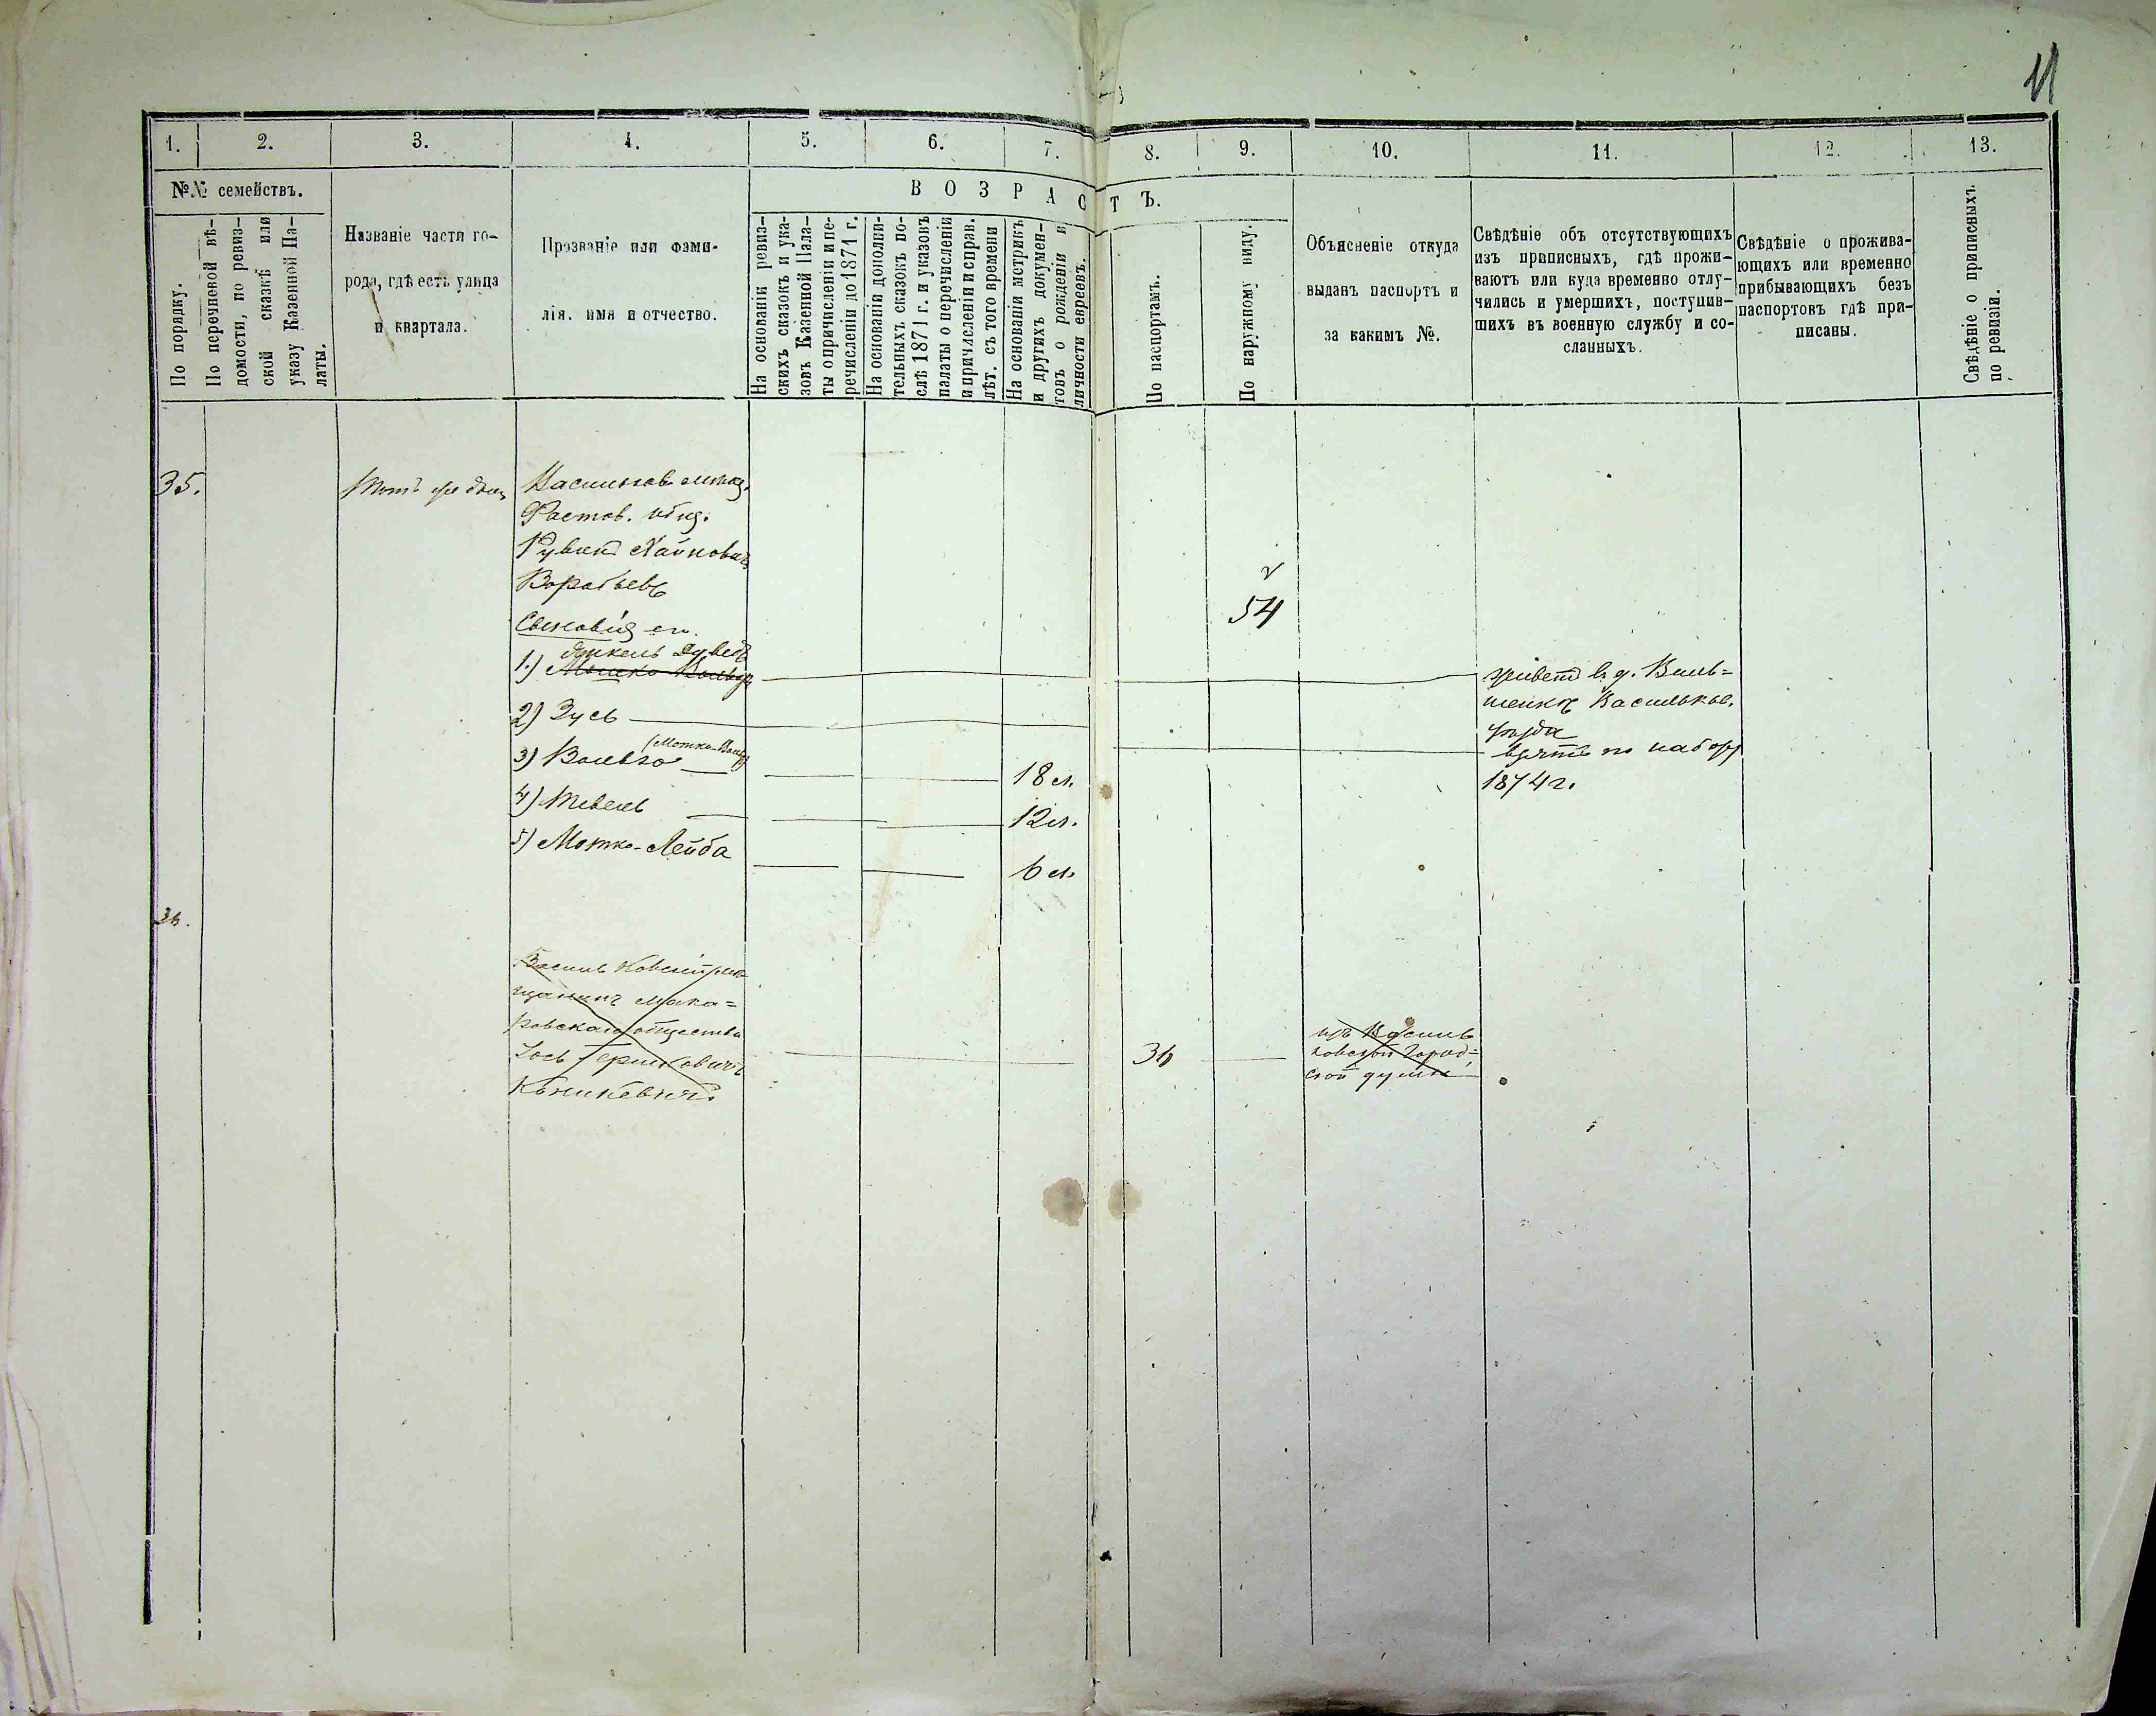 11
1. 2. 3. 4. 5. 6. 7. 8. 9. 10. 11. 12. 13.
№№ семействъ.
По порядку.
По перечневой вѣ-
домости, по ревиз-
ской сказкѣ или
указу Казенной Па-
латы.
Названіе части го-
рода, гдѣ есть улица
и квартала.
Прозваніе или фами-
лія, имя и отчество.
ВОЗРАСТЪ.
На основаніи ревиз-
скихъ сказокъ и ука-
зовъ Казенной Пала-
ты о причисленіи и пе-
речисленіи до 1871 г.
На основаніи дополни-
тельныхъ сказокъ по-
слѣ 1871 г. и указовъ
палаты о перечисленіи
и причисленіи и справ.
лѣт. съ того времени
На основаніи метрикъ
и другихъ докумен-
товъ о рожденіи и
личности евреевъ.
По паспортамъ.
По наружному виду.
Объясненіе откуда
выданъ паспортъ и
за какимъ №.
Свѣдѣніе объ отсутствующихъ
изъ приписныхъ, гдѣ прожи-
ваютъ или куда временно отлу-
чились и умершихъ, поступив-
шихъ въ военную службу и со-
сланныхъ.
Свѣдѣніе о прожива-
ющихъ или временно
прибывающихъ безъ
паспортовъ гдѣ при-
писаны.
Свѣдѣніе о приписныхъ
по ревизіи.
35.
Тотъ же домъ
Васильков. мѣщ.
Фастов. общ.
Рувинъ Хаимовичъ
Воробьевъ
54
Сыновья его.
Янкель Дуведъ
1.) Мошко Вольф
живетъ въ д. Виль-
шенкѣ Васильков.
уѣзда
2) Зусь
взятъ по набору
1874 г.
(Мотко-Вольф)
3) Волько 18 л.
4) Тевель 12 л.
5) Мотко-Лейба 6 л.
36.
Васильковскій мѣ-
щанинъ Мака-
ровскаго общества
Іось Гершковичъ
36
изъ Василь
ковской Город-
ской думы